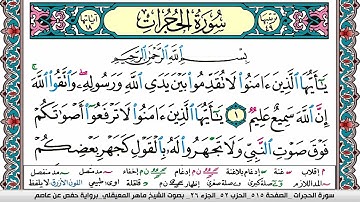 سُورَةُ الْحُجُرَاتِ
بِسْمِ اللَّهِ الرَّحْمَٰنِ الرَّحِيمِ
يَا أَيُّهَا الَّذِينَ آمَنُوا لَا تُقَدِّمُوا بَيْنَ يَدَيِ اللَّهِ وَرَسُولِهِ ۖ وَاتَّقُوا اللَّهَ
إِنَّ اللَّهَ سَمِيعٌ عَلِيمٌ ١ يَا أَيُّهَا الَّذِينَ آمَنُوا لَا تَرْفَعُوا أَصْوَاتَكُمْ
فَوْقَ صَوْتِ النَّبِيِّ وَلَا تَجْهَرُوا لَهُ بِالْقَوْلِ كَجَهْرِ بَعْضِكُمْ
سورة الحجرات الصفحة ٥١٥ الحزب ٥٢ الجزء ٢٦ بصوت الشيخ ماهر المعيقلي برواية حفص عن عاصم